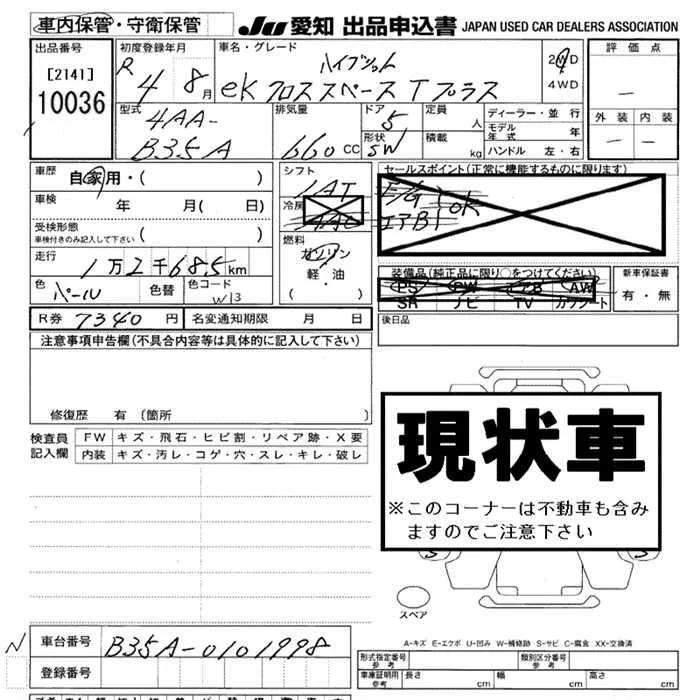 車内保管・守衛保管 JU 愛知 出品申込書 JAPAN USED CAR DEALERS ASSOCIATION
出品番号 初度登録年月 車名・グレード 評価点
[2141] R 4 8月 ハイブリット 2WD
10036 eK クロススペース T プラス 4WD
—
型式 排気量 ドア 定員 ディーラー・並行 外装 内装
4AA- 5 人 モデル年式 年
B35A 660 CC 形状 SW 積載 kg ハンドル 左・右 — —
車歴 自家用・( ) シフト セールスポイント(正常に機能するものに限ります)
1AT E/G OK
車検 年 月( 日) 冷房 エアB
AAC
受検形態
車検付きのみ記入して下さい ( ) 燃料
走行 ガソリン
1万2千685km 軽・油 装備品(純正品に限り○をつけてください) 新車保証書
色 パール 色替 色コード W13 ・( ) PS PW エアB AW 有・無
SR ナビ TV カワシート
R券 7340円 名変通知期限 月 日 後日品
注意事項申告欄(不具合内容等は具体的に記入して下さい)
修復歴 有 〔箇所 〕
現状車
※このコーナーは不動車も含み
ますのでご注意下さい
検査員 FW キズ・飛石・ヒビ割・リペア跡・X要
記入欄 内装 キズ・汚レ・コゲ・穴・スレ・キレ・破レ
S S
スペア
A-キズ E-エクボ U-凹み W-補修跡 S-サビ C-腐食 XX-交換済
N 車台番号 B35A-0101998
登録番号
形式指定番号 参考 類別区分番号 参考
車庫証明用 参考 長さ cm 幅 cm 高さ cm